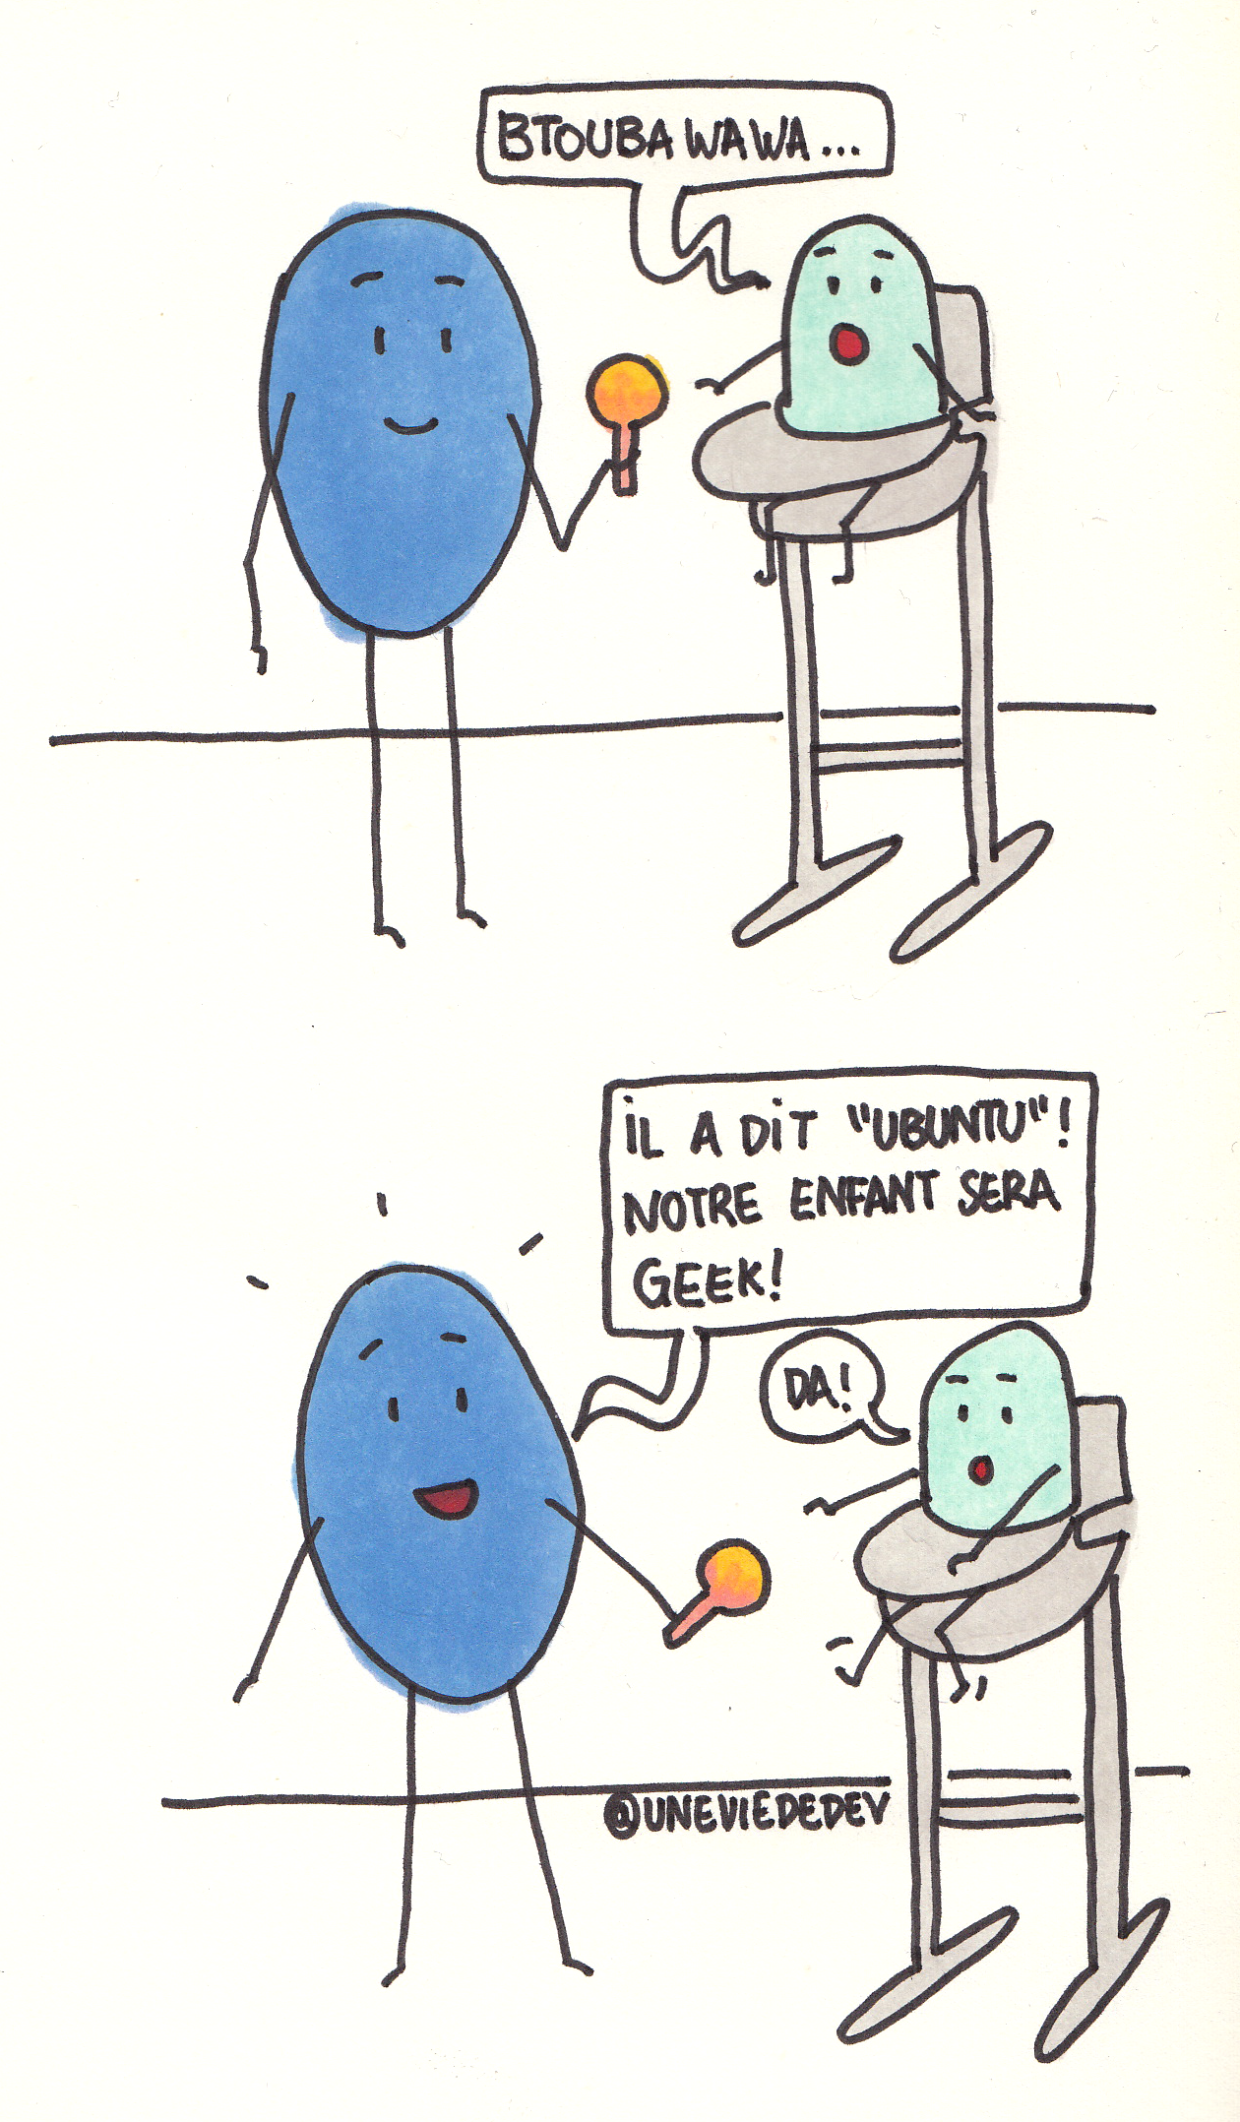 BTOUBA WAWA...
IL A DIT "UBUNTU"!
NOTRE ENFANT SERA
GEEK!
DA!
@UNEVIEDEDEV